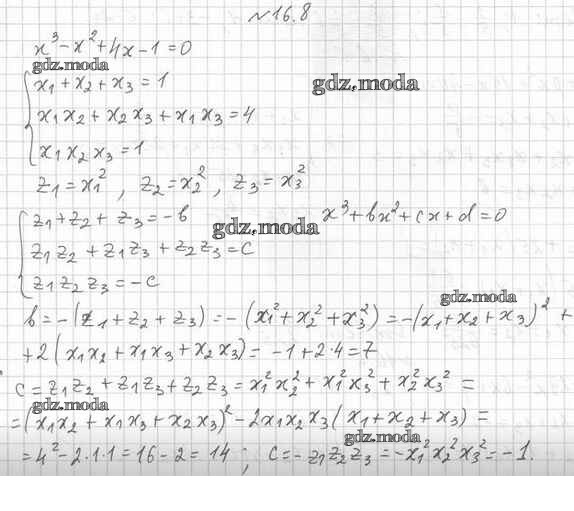 №16.8
x³ - x² + 4x - 1 = 0
gdz.moda
x₁ + x₂ + x₃ = 1
gdz.moda
x₁x₂ + x₂x₃ + x₁x₃ = 4
x₁x₂x₃ = 1
z₁ = x₁², z₂ = x₂², z₃ = x₃²
z₁ + z₂ + z₃ = -b x³ + bx² + cx + d = 0
gdz.moda
z₁z₂ + z₁z₃ + z₂z₃ = c
z₁z₂z₃ = -c
gdz.moda
b = -(z₁ + z₂ + z₃) = -(x₁² + x₂² + x₃²) = -(x₁ + x₂ + x₃)² +
+2(x₁x₂ + x₁x₃ + x₂x₃) = -1 + 2·4 = 7
c = z₁z₂ + z₁z₃ + z₂z₃ = x₁²x₂² + x₁²x₃² + x₂²x₃² =
gdz.moda
= (x₁x₂ + x₁x₃ + x₂x₃)² - 2x₁x₂x₃(x₁ + x₂ + x₃) =
gdz.moda
= 4² - 2·1·1 = 16 - 2 = 14; c = -z₁z₂z₃ = -x₁²x₂²x₃² = -1.